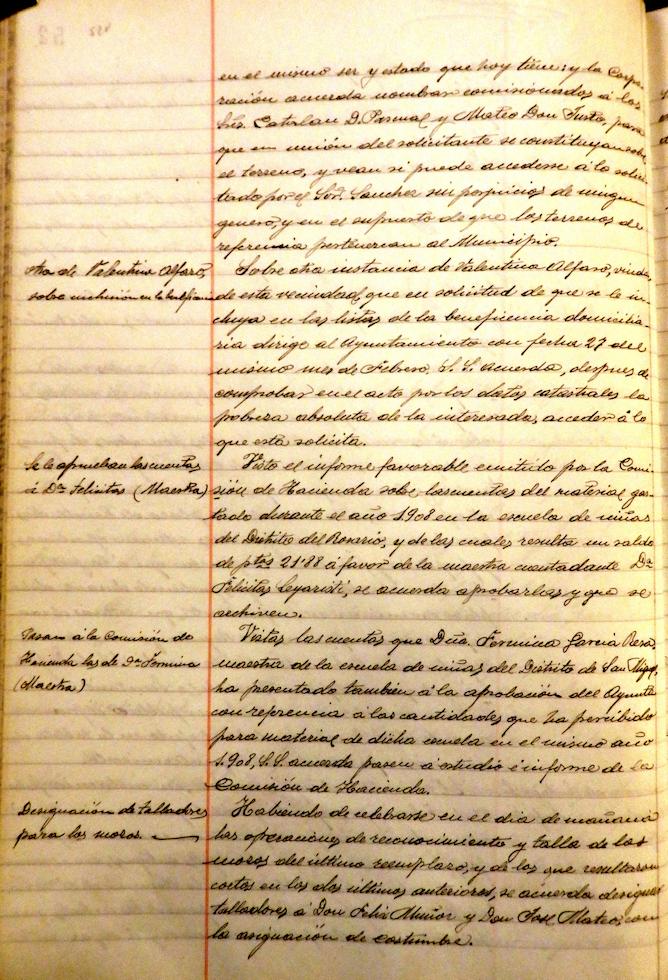 en el mismo ser y estado que hoy tiene; y la Corpo-
ración acuerda nombrar comisionados á los
Sres. Catalan D. Pascual y Mateo Don Justo, para
que en unión del solicitante se constituyan sobre
el terreno, y vean si puede accederse á lo solici-
tado por el Sor. Sanchez sin perjuicios de ningun
genero, y en el supuesto de que los terrenos de
referencia pertenezcan al Municipio.
otra de Valentina Alfaro,
sobre inclusión en la beneficencia
Sobre otra instancia de Valentina Alfaro, viuda,
de esta vecindad, que en solicitud de que se le in-
cluya en las listas de la beneficencia domicilia-
ria dirige al Ayuntamiento con fecha 27 del
mismo mes de Febrero, S. S. acuerda, despues de
comprobar en el acto por los datos catastrales la
pobreza absoluta de la interesada, acceder á lo
que esta solicita.
Se le aprueban las cuentas
á Dª Felicitas (Maestra)
Visto el informe favorable emitido por la Comi-
sión de Hacienda sobre las cuentas del material gas-
tado durante el año 1908 en la escuela de niñas
del Distrito del Rosario, y de las cuales resulta un saldo
de ptas 21'88 á favor de la maestra cuentadante Dª
Felicitas, se acuerda aprobarlas y que se
archiven.
Pasan á la Comisión de
Hacienda las de Dª Fermina
(Maestra)
Vistas las cuentas que Dña. Fermina Garcia
maestra de la escuela de niñas del Distrito de San Migl,
ha presentado tambien á la aprobación del Ayunto
con referencia á las cantidades que ha percibido
para material de dicha escuela en el mismo año
1.908, S. S. acuerda pasen á estudio é informe de la
Comisión de Hacienda.
Designación de talladores
para los mozos.
Habiendo de celebrarse en el dia de mañana
las operaciones de reconocimiento y talla de los
mozos del último reemplazo, y de los que resultaron
cortos en los dos últimos anteriores, se acuerda designar
talladores á Don Felix Muñoz y Don José Mateo, con
la asignación de costumbre.